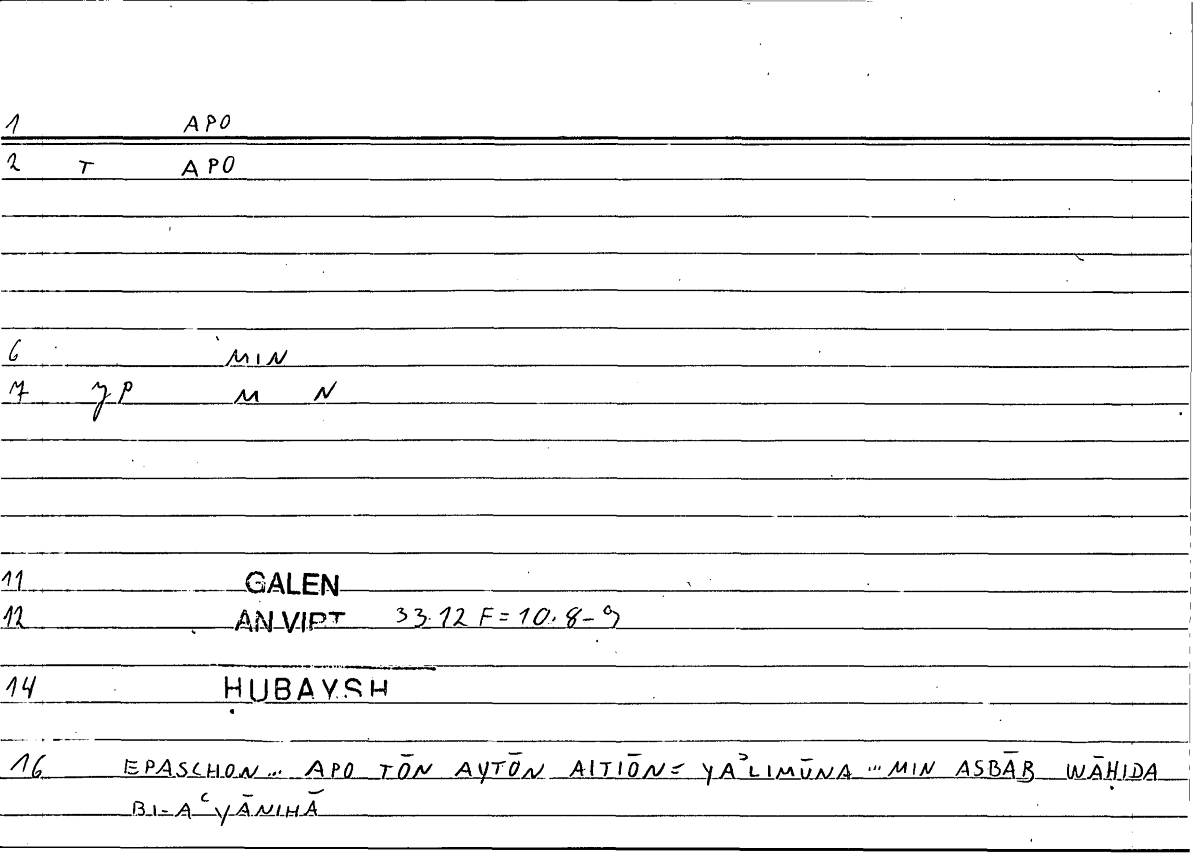 1 APO
2 T APO
6 MIN
7 yP M N
11 GALEN
12 AN VIRT 33.12 F = 10.8-9
14 ḤUBAYSH
16 EPASCHON... APO TŌN AYTŌN AITIŌN = YAʾLIMŪNA ... MIN ASBĀB WĀḤIDA
BI-AʿYĀNIHĀ